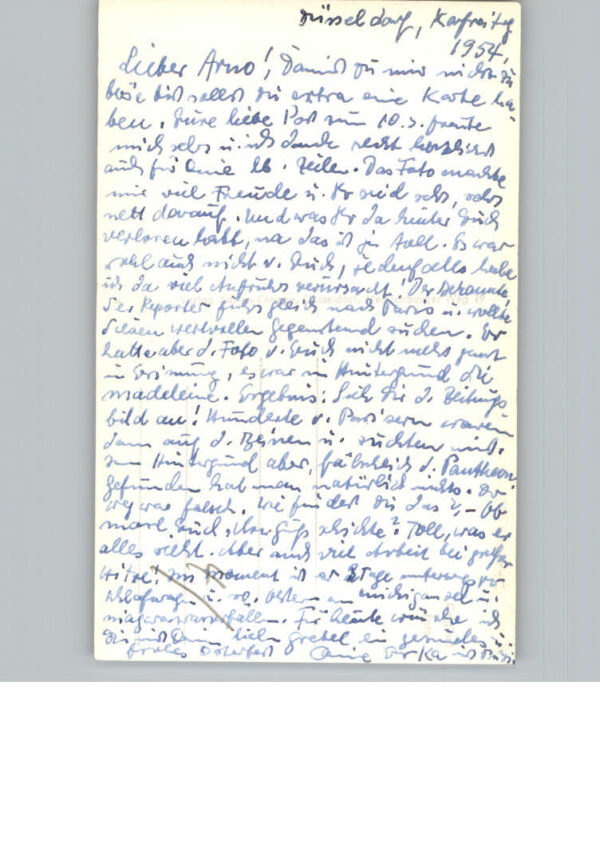 Düsseldorf, Karfreitag
1954,
Lieber Arno! Damit Du mir nicht zu
böse bist sollst Du extra eine Karte ha-
ben. Eure liebe Post vom 10.3. freute
mich sehr u. ich danke recht herzlichst
auch für Deine lb. Zeilen. Das Foto machte
mir viel Freude u. Ihr seid sehr, sehr
nett darauf. Und was Ihr da hinter Euch
verloren habt, na das ist ja toll. Es war
wohl auch nicht v. Euch, jedenfalls habe
ich da viel Aufruhr verursacht! Der Bekannte,
der Reporter fuhr gleich nach Paris u. wollte
diesen wertvollen Gegenstand suchen. Er
hatte aber d. Foto v. Euch nicht mehr ganz
in Erinnerung, es war im Hintergrund die
Madeleine. Ergebnis: Sieh Dir d. Zeitungs
bild an! Hunderte v. Parisern waren
dann auf d. Beinen u. suchten mit.
Im Hintergrund aber, fälschlich d. Pantheon.
Gefunden hat man natürlich nichts. Der
Weg war falsch. Wie findest Du das?, - Ob
man auch
Toll, was er
alles sieht. Aber auch viel Arbeit bei großer
Hitze. Im Moment ist er 3 Tage unterwegs im
Schlafwagen u. Ostern am Michigansee u.
Niagarawasserfällen. Für heute wünsche ich
Dir und Deiner lieben Gretel ein gesundes u.
frohes Osterfest Deine